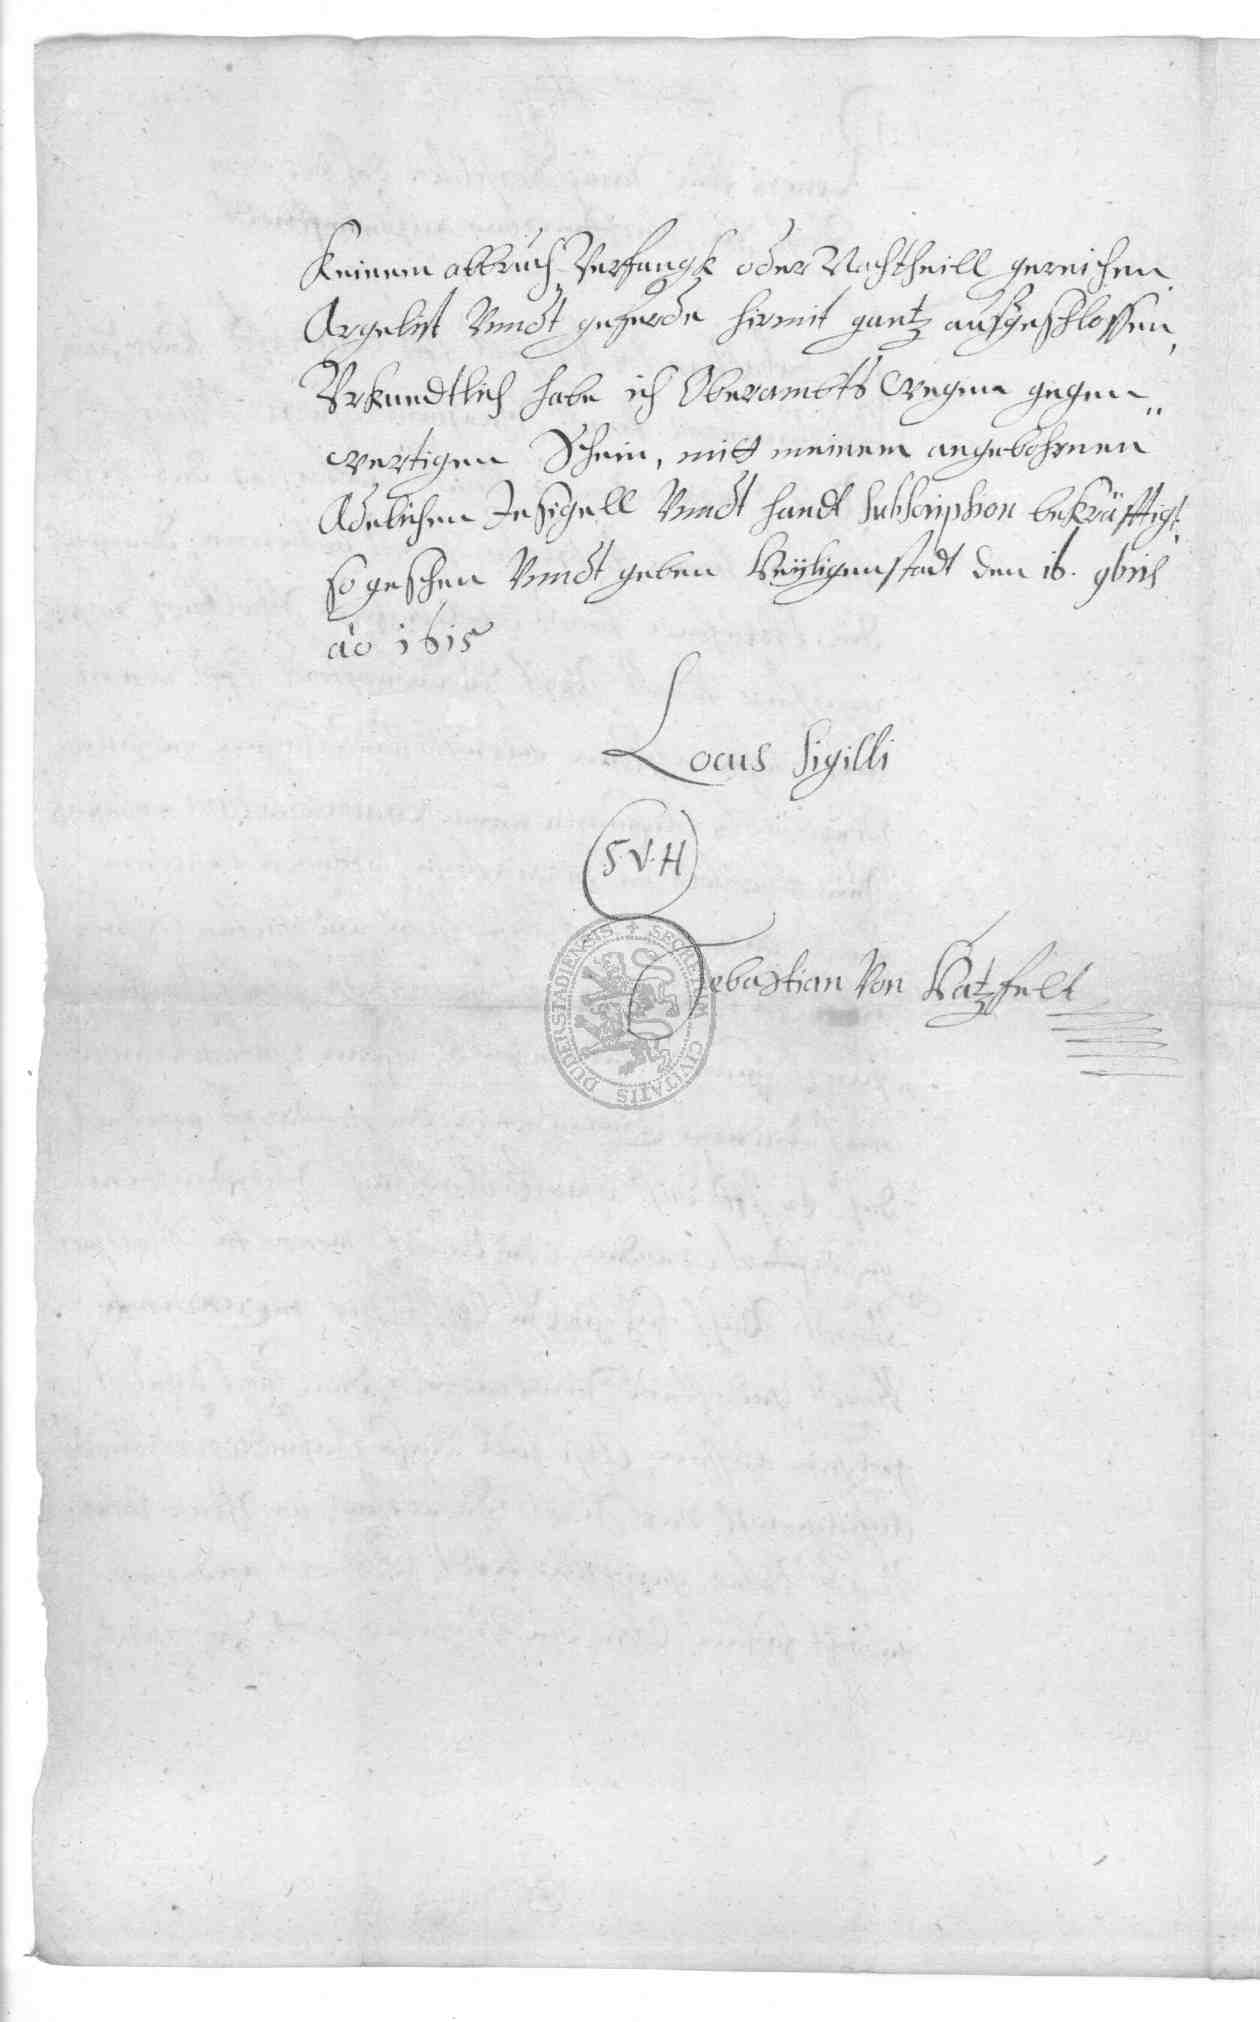 Keinem abbruch Verfangk oder Nachtheill gereichen.
Argelist Vnndt geferde hirmit gantz außgeschlossen,
Vrkundtlich habe ich Oberambts wegen gegen„
wertigen Schein, mitt meinem angebohrnen
Adelichen Insigell Vnndt handt subscription bekräfftigt,
so geschen Vnndt geben Heÿligenstadt den 16. 9bris
ao 1615
Locus Sigilli
S V. H
Sebastian Von Hatzfelt
SECRETUM CIVITATIS DUDERSTADIENSIS